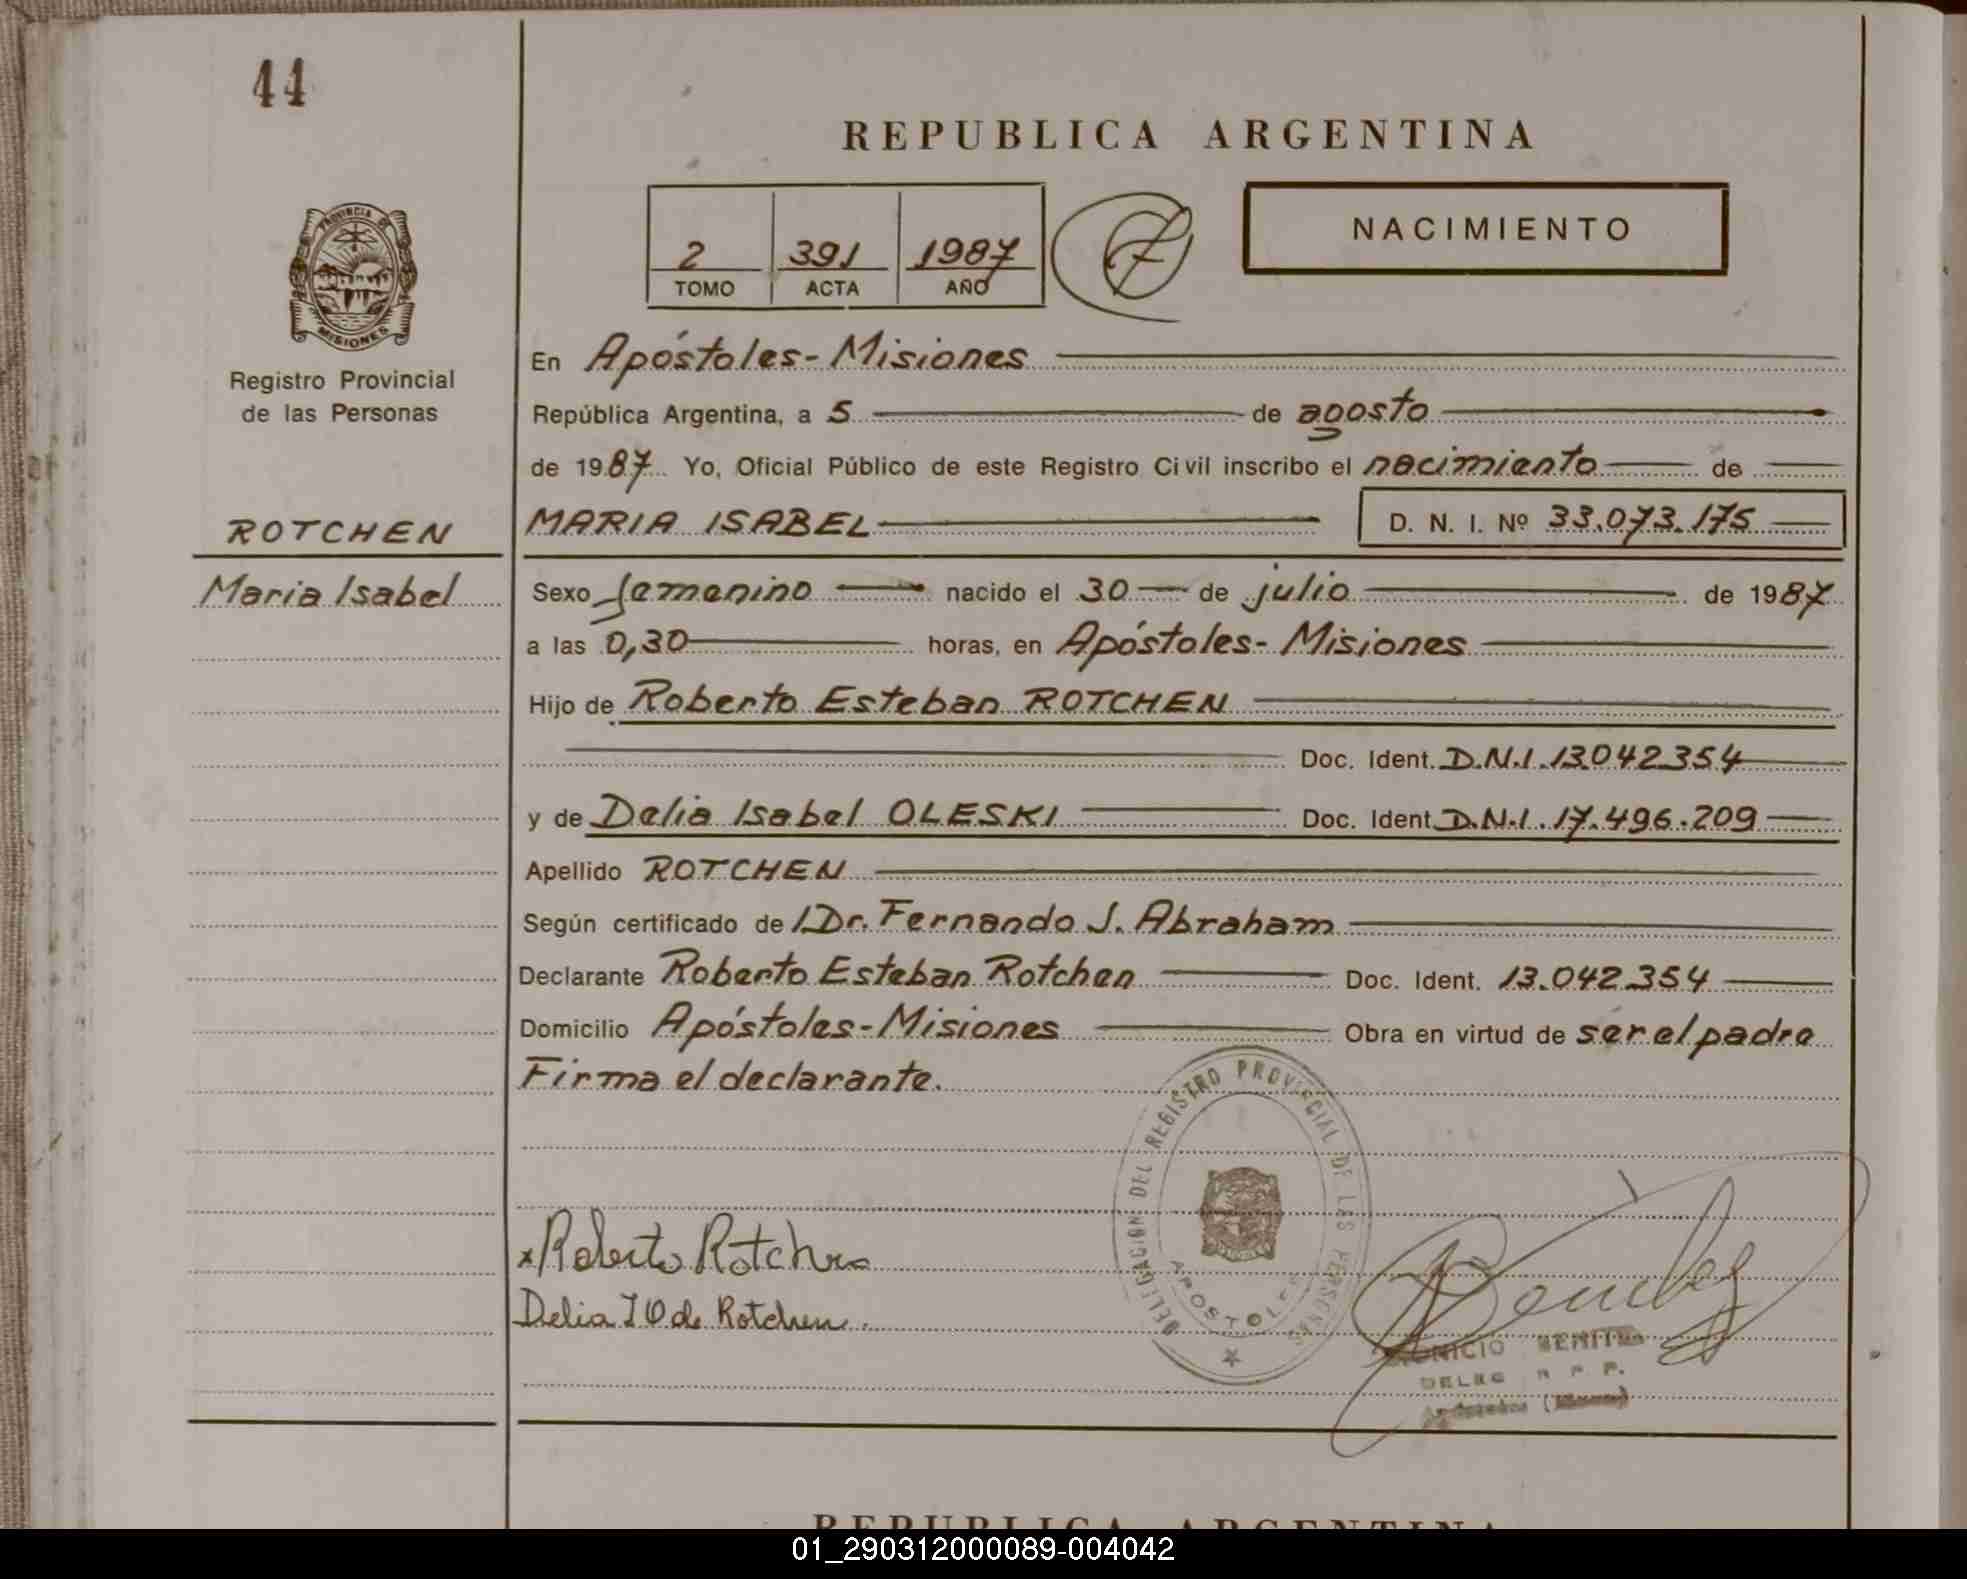 44
REPUBLICA ARGENTINA
PROVINCIA DE
MISIONES
Registro Provincial
de las Personas
2 391 1987
TOMO ACTA AÑO
NACIMIENTO
En Apóstoles - Misiones
República Argentina, a 5 de agosto
de 1987 Yo, Oficial Público de este Registro Civil inscribo el nacimiento de
ROTCHEN
MARIA ISABEL D. N. I. Nº 33.073.175
Maria Isabel
Sexo femenino nacido el 30 de julio de 1987
a las 0,30 horas, en Apóstoles - Misiones
Hijo de Roberto Esteban ROTCHEN
Doc. Ident. D.N.I. 13.042.354
y de Delia Isabel OLESKI Doc. Ident. D.N.I. 17.496.209
Apellido ROTCHEN
Según certificado de Dr. Fernando J. Abraham
Declarante Roberto Esteban Rotchen Doc. Ident. 13.042.354
Domicilio Apóstoles - Misiones Obra en virtud de ser el padre
Firma el declarante.
DELEGACION DEL REGISTRO PROVINCIAL DE LAS PERSONAS
APOSTOLES
x Roberto Rotchen
Delia I O de Rotchen.
BENITEZ
DELEG R P P.
REPUBLICA ARGENTINA
01_290312000089-004042